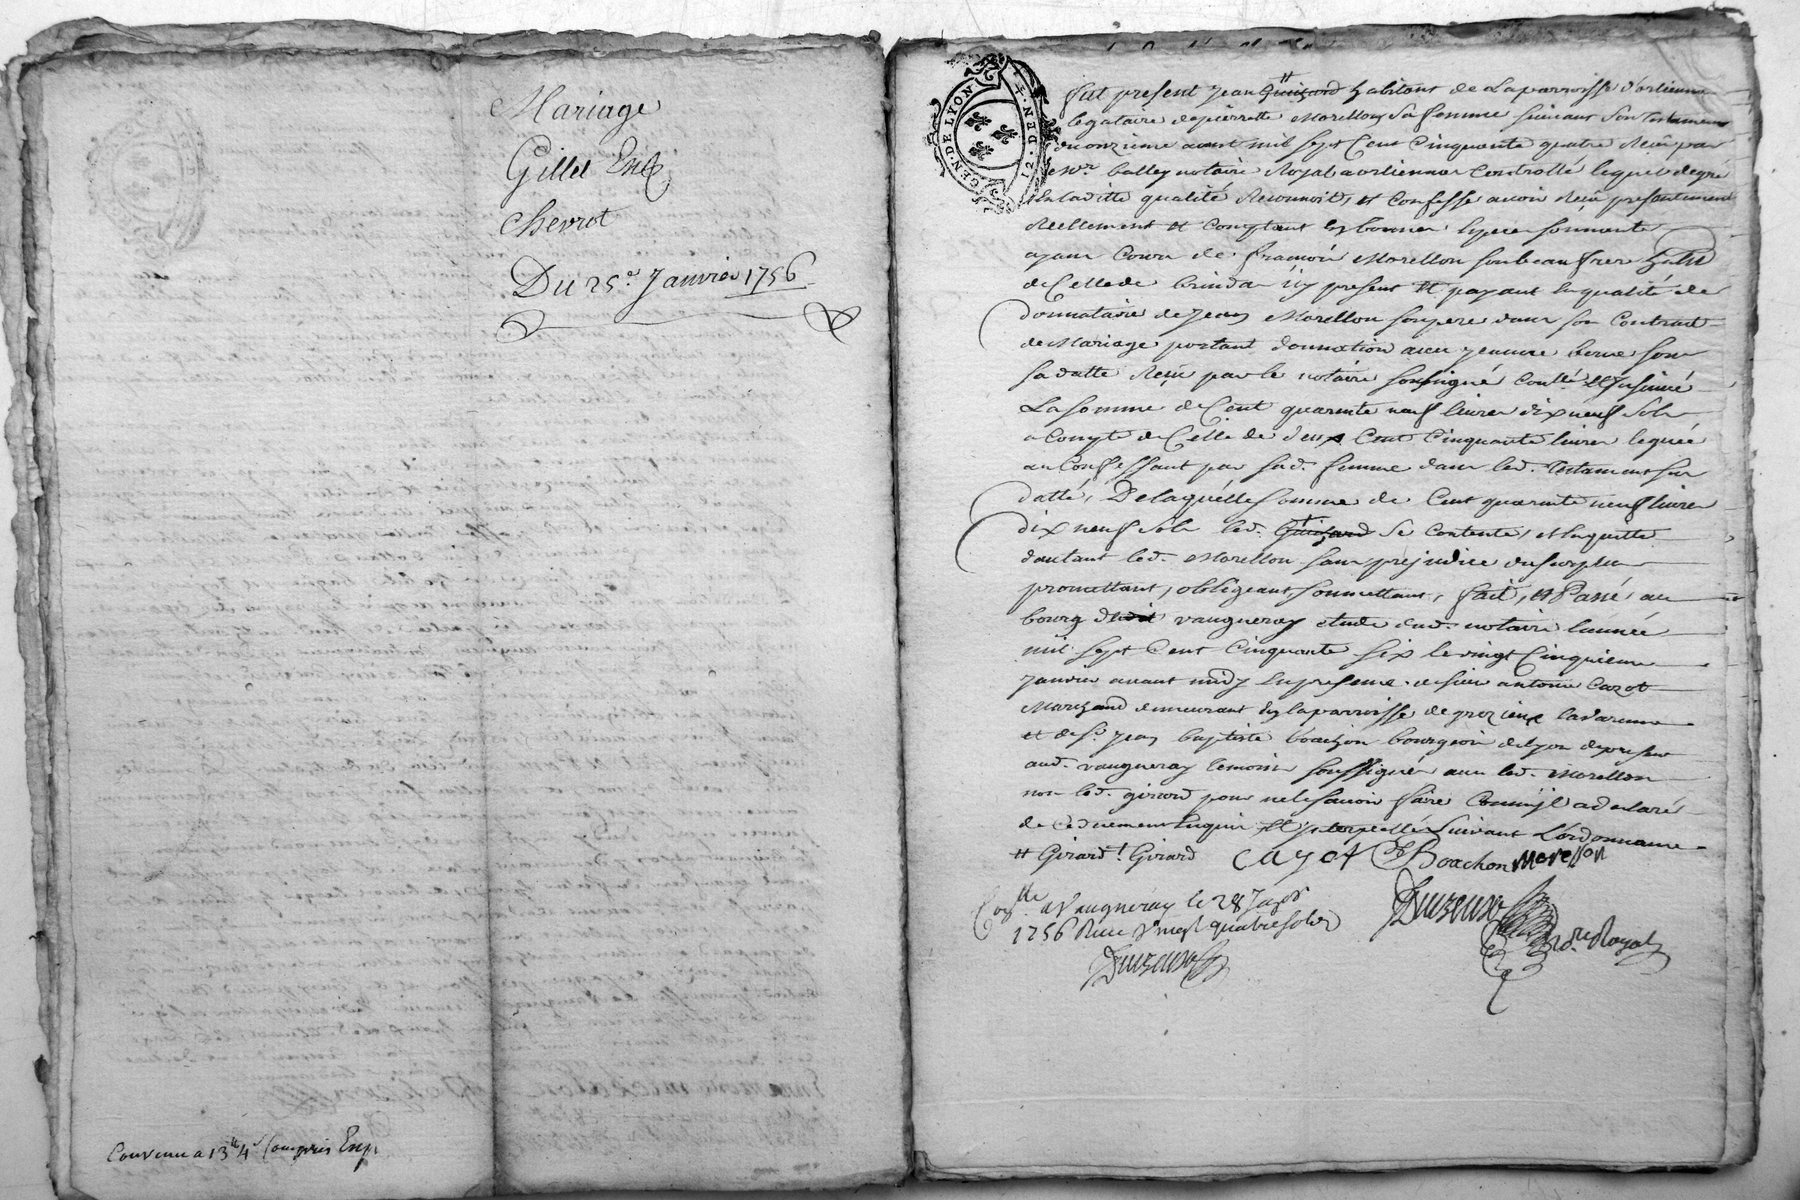 Mariage
Gillet Ent
Chevrot
Du 25e Janvier 1756
Convenu a 13tt 4s Compris Exp.
GEN. DE LYON
12. DEN. 4.
fut present Jean Guizard habitant de Laparroisse d'orlienna
legataire de pierrette Morellon Sa femme suivant Son testament
du onzieme aoust mil sept Cent Cinquante quatre Reçu par
Me. balley notaire Royal a orliennas Controllé lequel de gré
en la ditte qualité Reconnoit, et Confesse avoir Reçu presentement
Réellement et Comptant en bonnes especes sonnante
ayant Cours de françois Morellon son beau frere habt
de Celle de brindas icy present et payant en qualité de
donnataire de Jean Morellon son pere dans son Contract
de Mariage portant donnation
sa datte Reçu par le notaire soussigné Conllé et Insinué
La Somme de Cent quarante neuf livres dix neuf sols
a Compte de Celle de deux Cent Cinquante livres leguée
au Confessant par sad. femme dans led. testament sus
datté, De laquelle somme de Cent quarante neuf livres
dix neuf sols led. Guizard Se Contente, et en quitte
d'autant led. Morellon sans prejudice du surplus
promettant, obligeant, soumettant, fait, et Passé au
bourg de vaugneray etude dud. notaire l'année
mil sept Cent Cinquante six le vingt Cinquieme
Janvier avant midy en presence de sieur antoine Cayot
Marchand demeurant en la parroisse de grezieu la varenne
et de sr. Jean baptiste boachon bourgeois de Lyon de present
aud. vaugneray temoins soussignés avec led. Morellon
non led. girard pour ne le savoir faire Comm'il a declaré
de Ce duement enquis et Interpellé suivant L'ordonnance
tt Girard ! Girard Cayot JBBoachon Morellon
Conllé a Vaugneray le 28 Janr
1756 Reçu Vingt quatre sols
nore Royal